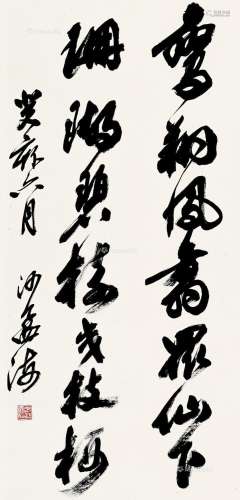 鸞翔鳳翥眾仙下
珊瑚碧樹交枝柯
癸亥六月 沙孟海